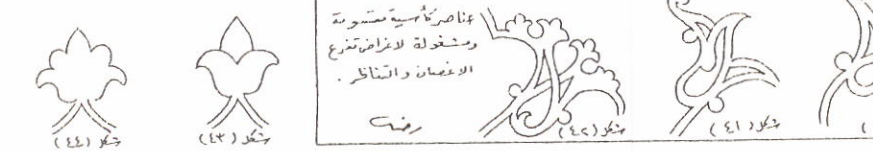 عناصر كأسية مفتوحة
ومشغولة لاغراض تفرع
الاغصان والتناظر .
شكل (٤١)
شكل (٤٢)
شكل (٤٣)
شكل (٤٤)